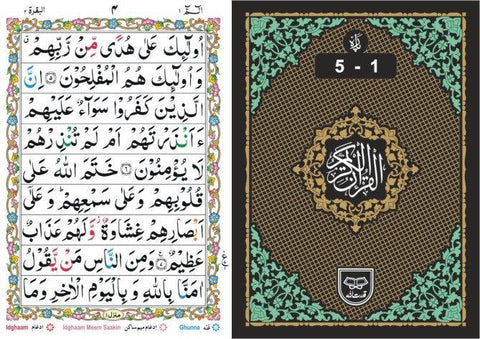 البقرة ٢
٤
الٓمّٓ ١
اُولٰٓئِكَ عَلٰى هُدًى مِّنْ رَّبِّهِمْ
وَاُولٰٓئِكَ هُمُ الْمُفْلِحُوْنَ ۝٥ اِنَّ
الَّذِيْنَ كَفَرُوْا سَوَآءٌ عَلَيْهِمْ
ءَاَنْذَرْتَهُمْ اَمْ لَمْ تُنْذِرْهُمْ
لَا يُؤْمِنُوْنَ ۝٦ خَتَمَ اللّٰهُ عَلٰى
قُلُوْبِهِمْ وَعَلٰى سَمْعِهِمْ ؕ وَعَلٰٓى
اَبْصَارِهِمْ غِشَاوَةٌ ؗ وَّلَهُمْ عَذَابٌ
عَظِيْمٌ ۝٧ وَمِنَ النَّاسِ مَنْ يَّقُوْلُ
اٰمَنَّا بِاللّٰهِ وَبِالْيَوْمِ الْاٰخِرِ وَمَا
منزل ١
Idghaam ادغام Idghaam Meem Saakin ادغام میم ساکن Ghunna غنه
پاره
5 - 1
القرآن الكريم